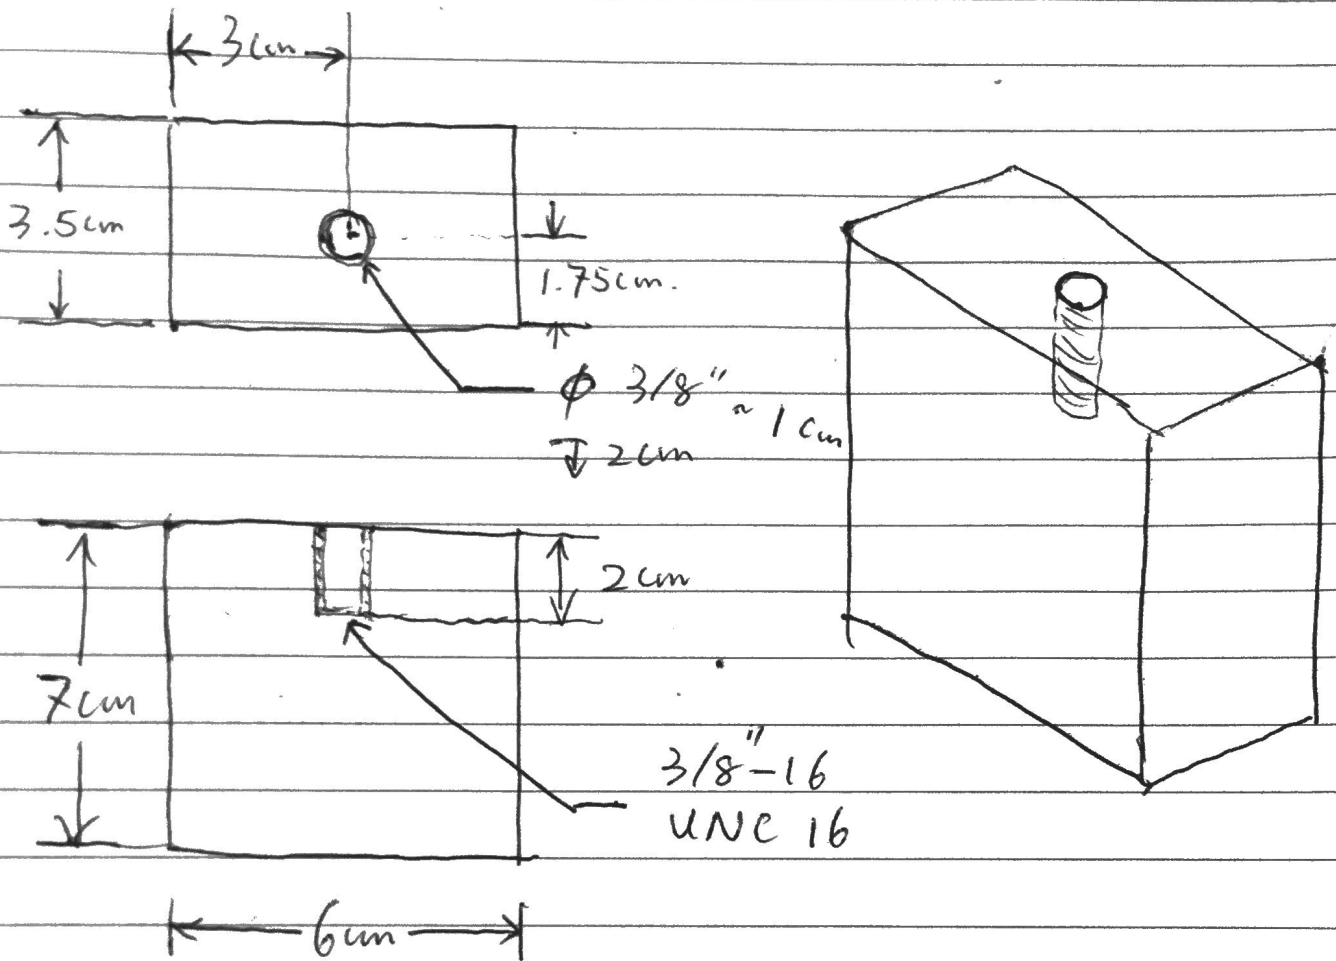 3cm
3.5cm
1.75cm.
φ 3/8" ~ 1cm
↧ 2cm
2cm
7cm
3/8"-16
UNC 16
6cm